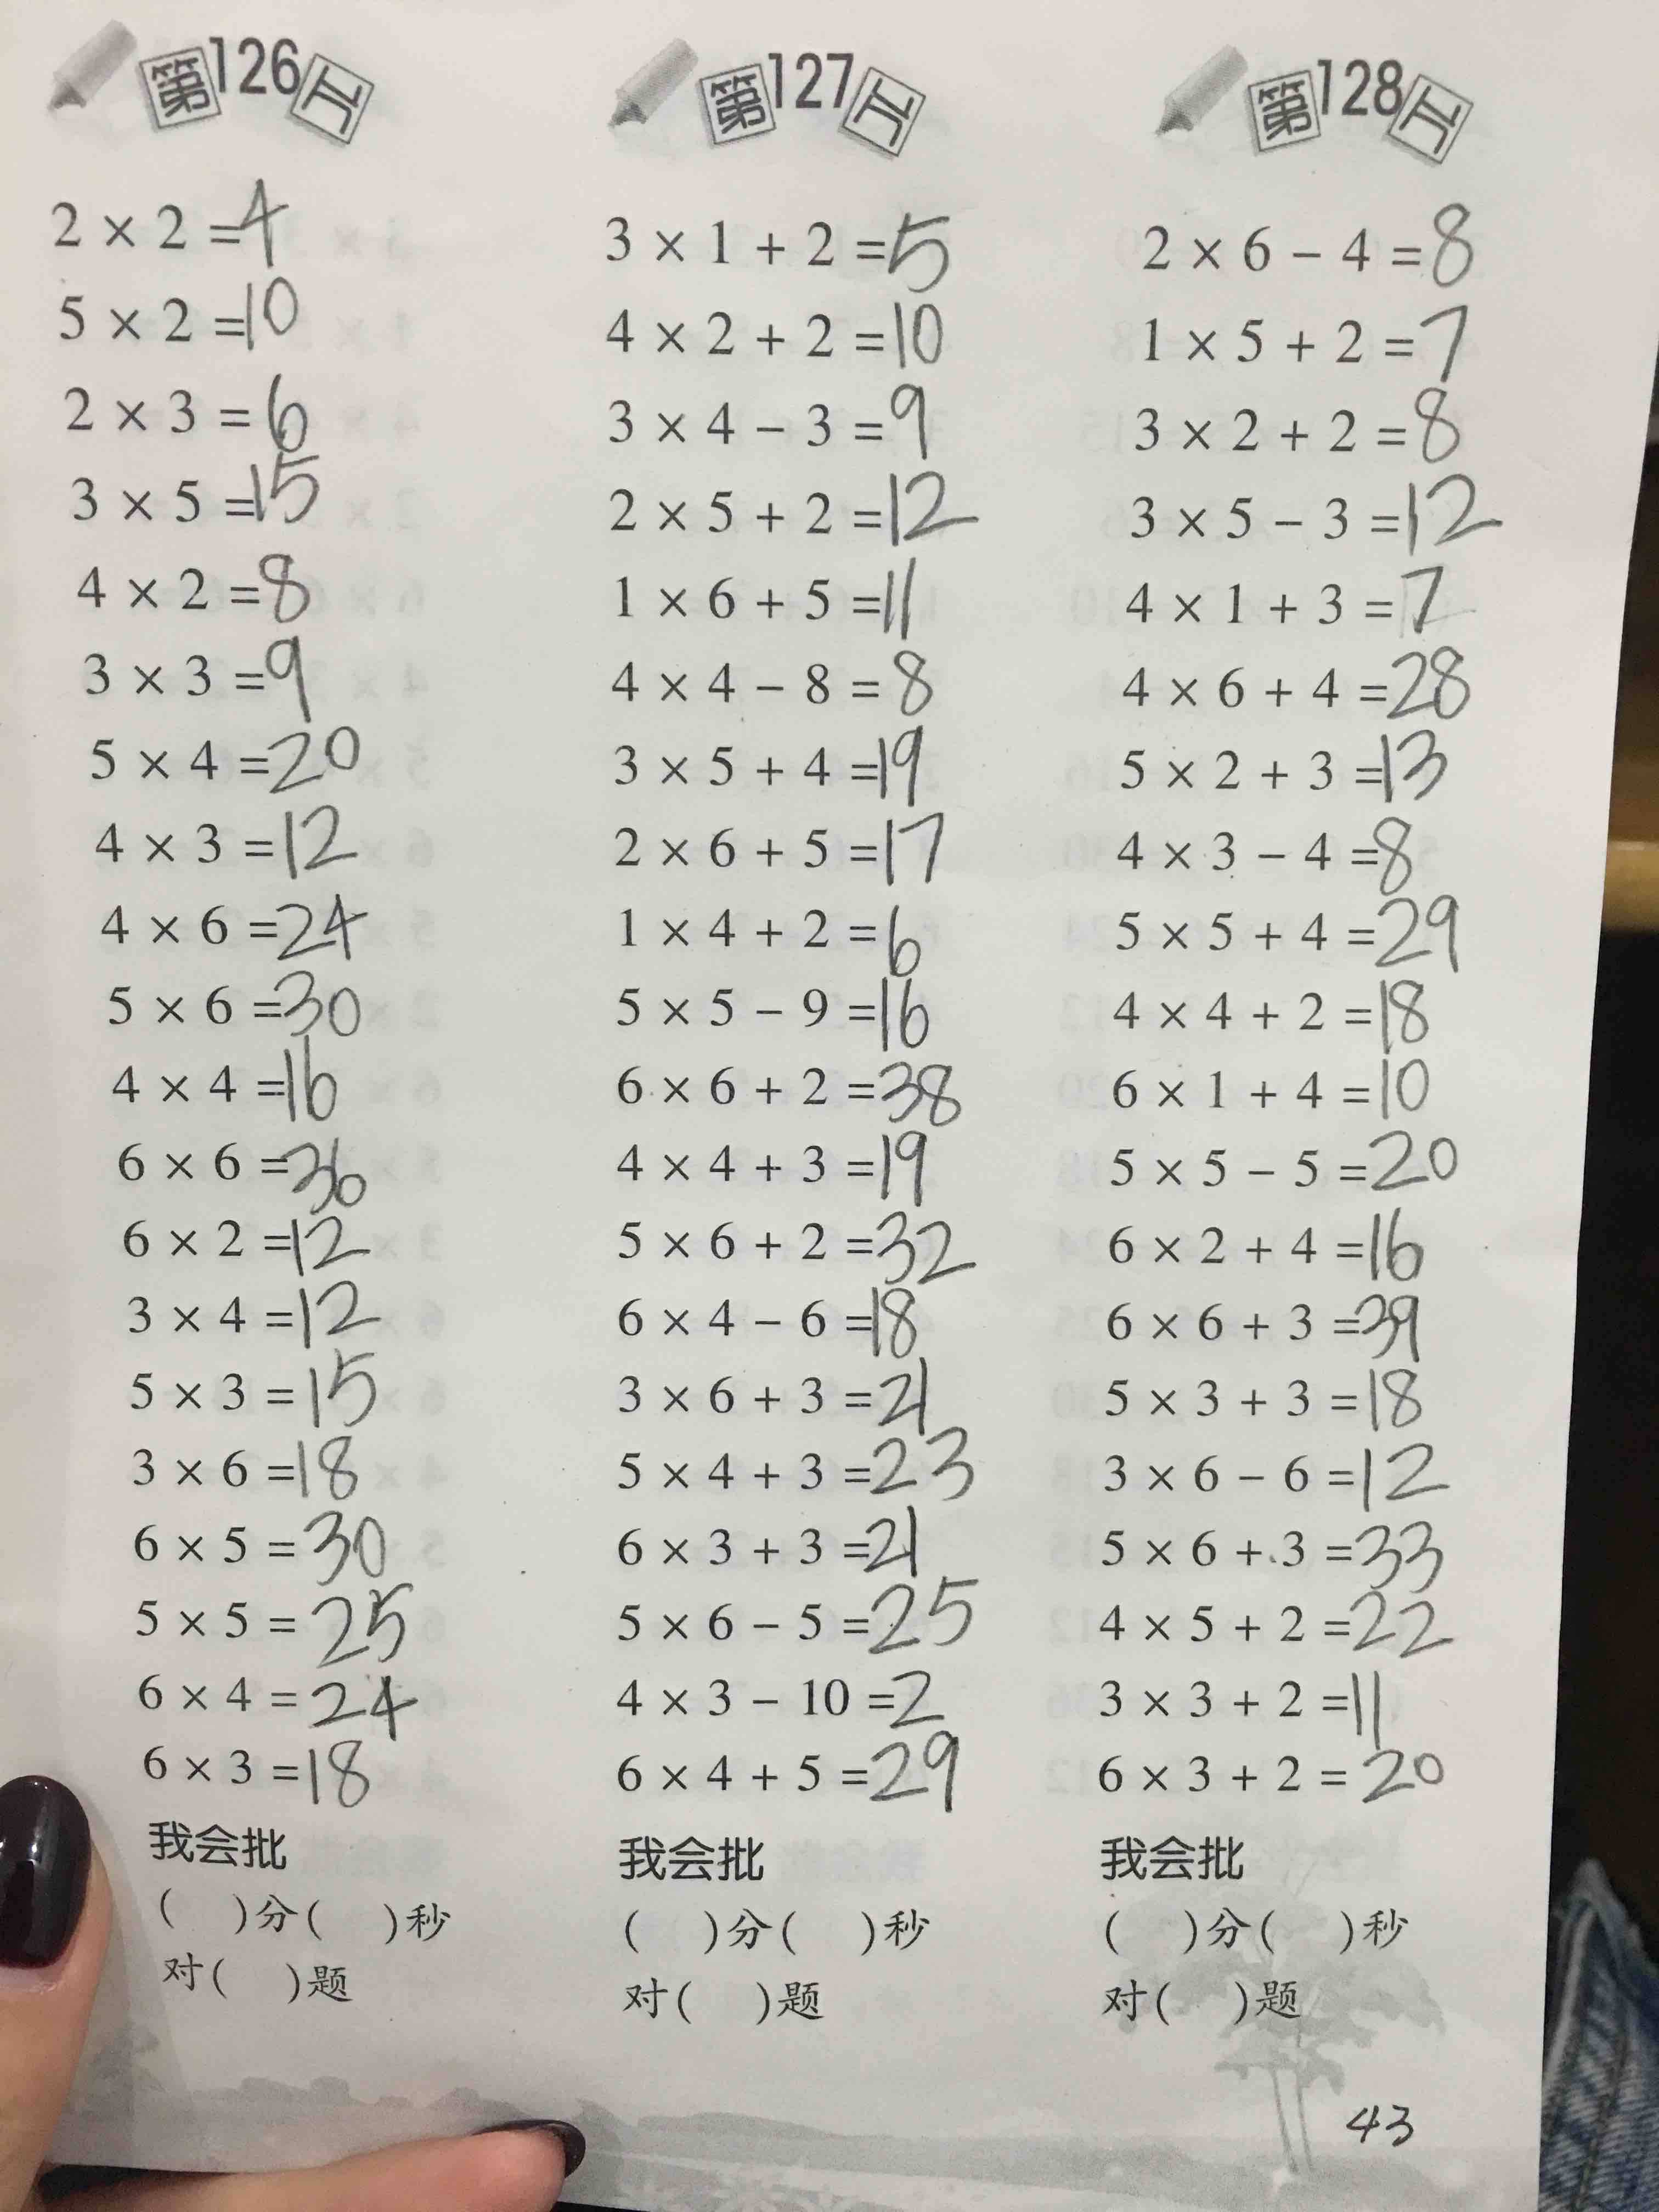 第126开
2 × 2 =4
5 × 2 =10
2 × 3 =6
3 × 5 =15
4 × 2 =8
3 × 3 =9
5 × 4 =20
4 × 3 =12
4 × 6 =24
5 × 6 =30
4 × 4 =16
6 × 6 =36
6 × 2 =12
3 × 4 =12
5 × 3 =15
3 × 6 =18
6 × 5 =30
5 × 5 =25
6 × 4 =24
6 × 3 =18
我会批
( )分( )秒
对( )题
第127开
3 × 1 + 2 =5
4 × 2 + 2 =10
3 × 4 − 3 =9
2 × 5 + 2 =12
1 × 6 + 5 =11
4 × 4 − 8 =8
3 × 5 + 4 =19
2 × 6 + 5 =17
1 × 4 + 2 =6
5 × 5 − 9 =16
6 × 6 + 2 =38
4 × 4 + 3 =19
5 × 6 + 2 =32
6 × 4 − 6 =18
3 × 6 + 3 =21
5 × 4 + 3 =23
6 × 3 + 3 =21
5 × 6 − 5 =25
4 × 3 − 10 =2
6 × 4 + 5 =29
我会批
( )分( )秒
对( )题
第128开
2 × 6 − 4 =8
1 × 5 + 2 =7
3 × 2 + 2 =8
3 × 5 − 3 =12
4 × 1 + 3 =7
4 × 6 + 4 =28
5 × 2 + 3 =13
4 × 3 − 4 =8
5 × 5 + 4 =29
4 × 4 + 2 =18
6 × 1 + 4 =10
5 × 5 − 5 =20
6 × 2 + 4 =16
6 × 6 + 3 =39
5 × 3 + 3 =18
3 × 6 − 6 =12
5 × 6 + 3 =33
4 × 5 + 2 =22
3 × 3 + 2 =11
6 × 3 + 2 =20
我会批
( )分( )秒
对( )题
43